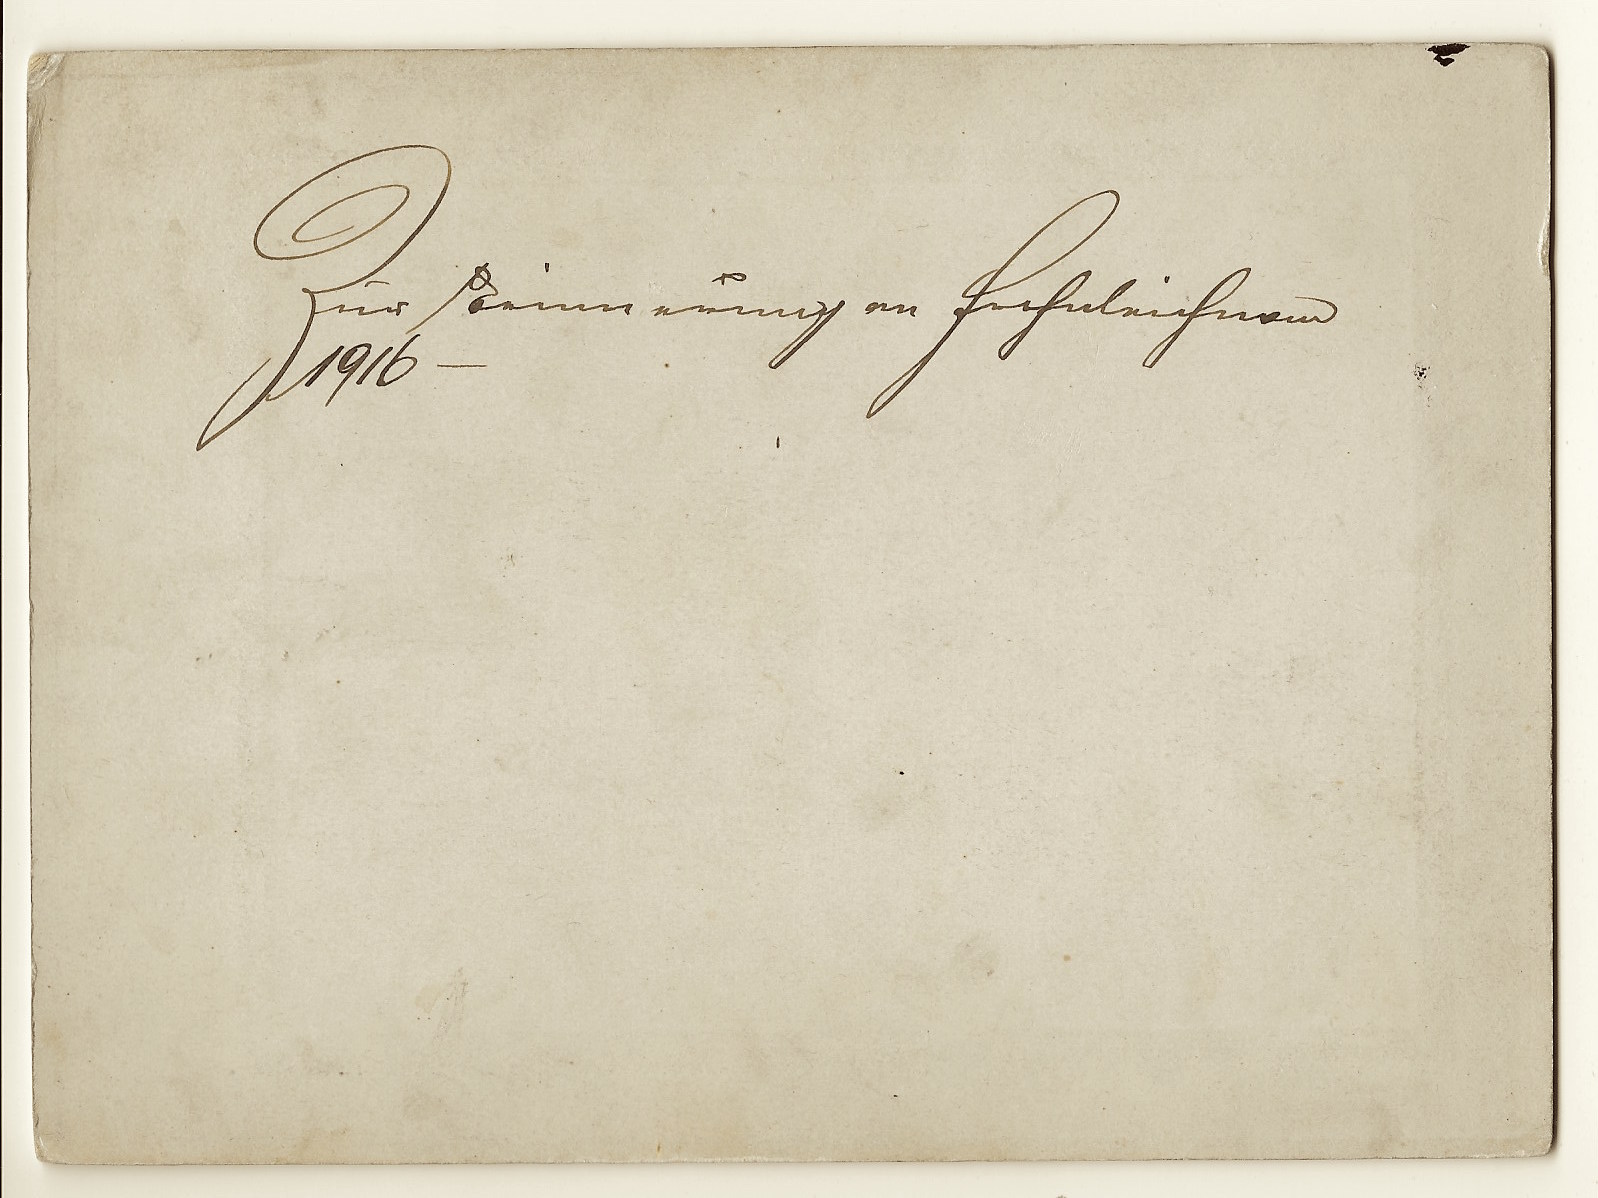 Zur Erinnerung an Frohnleichnam
1916 —